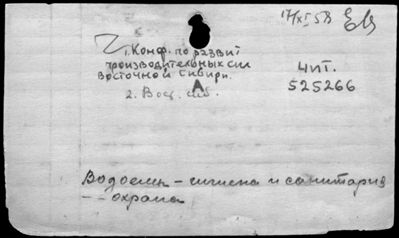 17/XI 58
1. Конф. по развит
производительных сил
Восточной Сибири.
2. Вос. Сиб.
А
Чит.
525266
Водоемы - гигиена и санитария
- - охрана